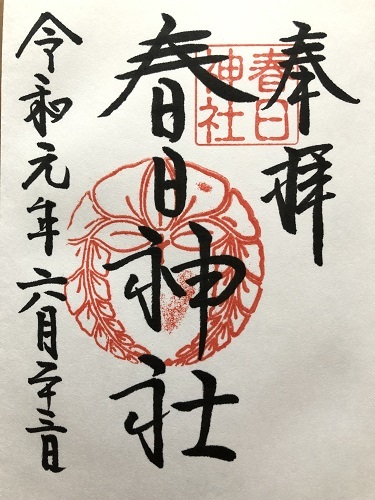 奉拝
春日神社
春日神社
令和元年六月二十三日